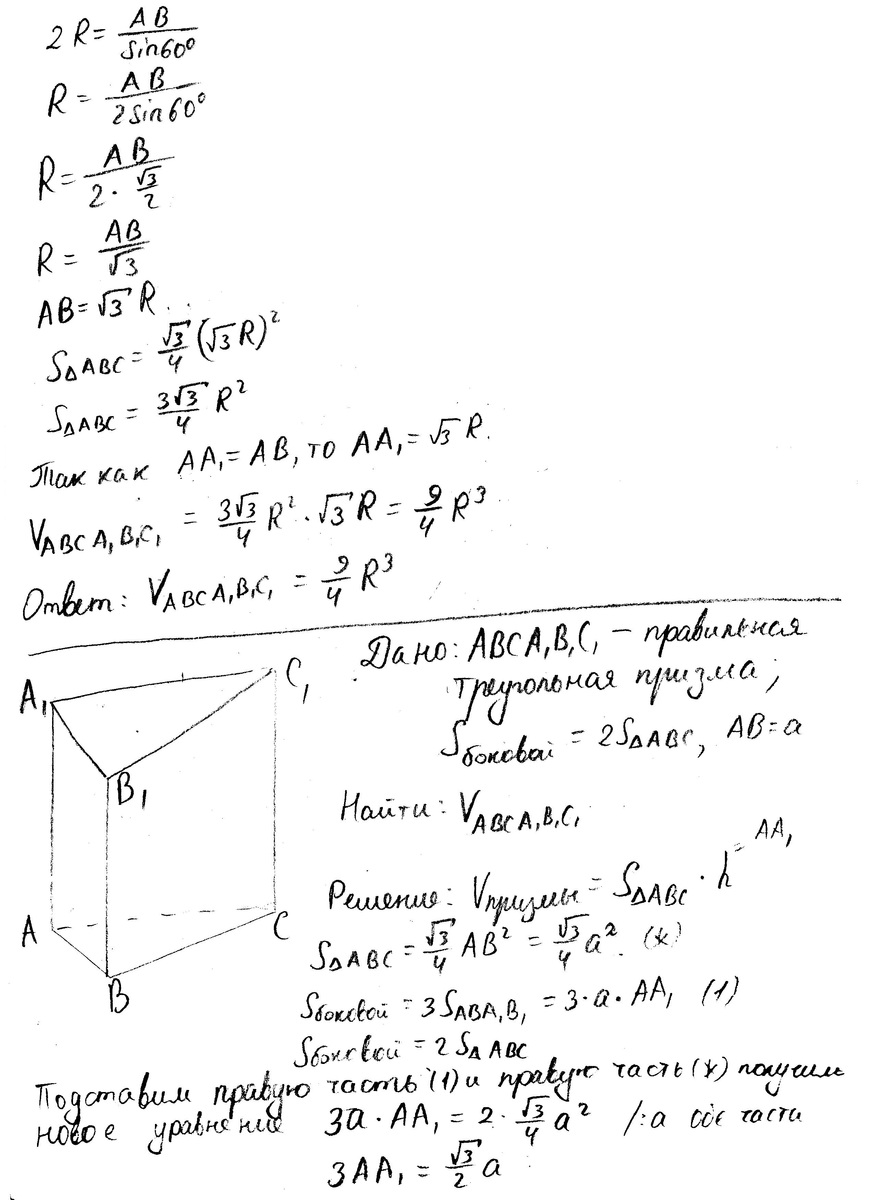 2R = AB / sin60°
R = AB / 2sin60°
R = AB / 2 · √3/2
R = AB / √3
AB = √3 R
S△ABC = √3/4 (√3 R)²
S△ABC = 3√3/4 R²
Так как AA₁ = AB, то AA₁ = √3 R.
V ABCA₁B₁C₁ = 3√3/4 R² · √3 R = 9/4 R³
Ответ: V ABCA₁B₁C₁ = 9/4 R³
Дано: ABCA₁B₁C₁ – правильная
треугольная призма;
Sбоковой = 2S△ABC, AB = a
Найти: V ABCA₁B₁C₁
Решение: Vпризмы = S△ABC · h = AA₁
S△ABC = √3/4 AB² = √3/4 a². (*)
Sбоковой = 3S ABA₁B₁ = 3·a·AA₁ (1)
Sбоковой = 2S△ABC
Подставим правую часть (1) и правую часть (*) получим
новое уравнение 3a·AA₁ = 2·√3/4 a² /:a обе части
3AA₁ = √3/2 a
A₁
C₁
B₁
A
C
B